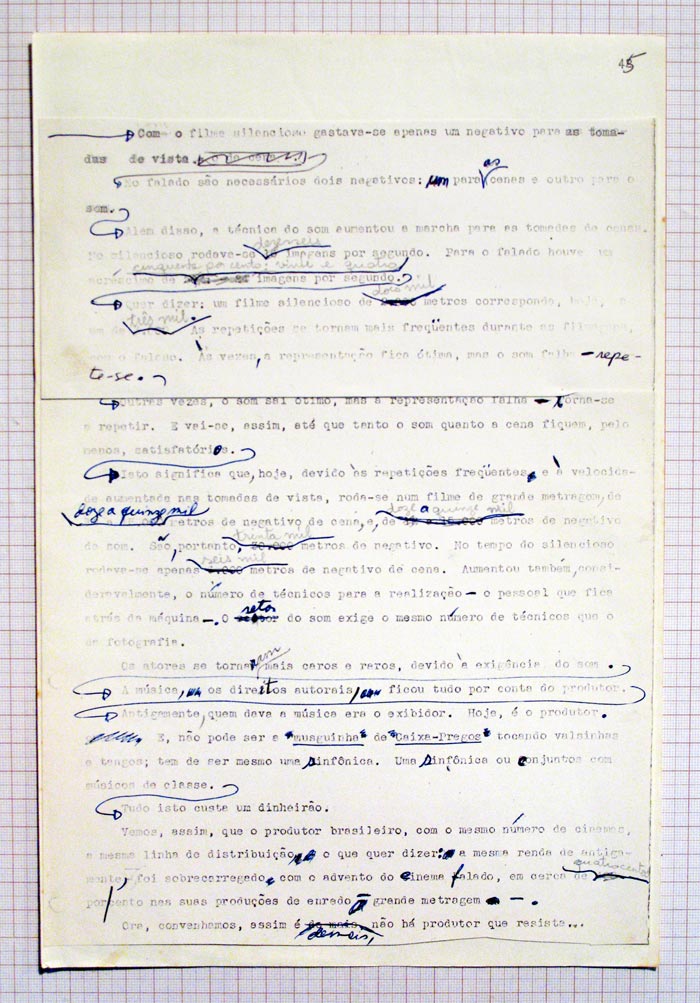 45
Com o filme silencioso gastava-se apenas um negativo para as toma-
das de vista.
No falado são necessários dois negativos: um para as cenas e outro para o
som.
Alem disso, a técnica do som aumentou a marcha para as tomadas de cena.
dezesseis
No silencioso rodava-se imagens por segundo. Para o falado houve um
cinquenta por cento: vinte e quatro
acréscimo de imagens por segundo.
dois mil
Quer dizer: um filme silencioso de 2.000 metros corresponde, hoje, a
três mil.
um de As repetições se tornam mais freqüentes durante as filmagens,
com o falado. Às vezes, a representação fica ótima, mas o som falha — repe-
te-se.
Outras vezes, o som sai ótimo, mas a representação falha — torna-se
a repetir. E vai-se, assim, até que tanto o som quanto a cena fiquem, pelo
menos, satisfatórios.
Isto significa que, hoje, devido às repetições freqüentes, e à velocida-
de aumentada nas tomadas de vista, roda-se num filme de grande metragem, de
doze a quinze mil doze a quinze mil
metros de negativo de cena, e, de metros de negativo
trinta mil
de som. São, portanto, 30.000 metros de negativo. No tempo do silencioso
seis mil
rodava-se apenas metros de negativo de cena. Aumentou também, consi-
deravelmente, o número de técnicos para a realização — o pessoal que fica
atrás da máquina —. O setor do som exige o mesmo número de técnicos que o
da fotografia.
Os atores se tornaram mais caros e raros, devido à exigência do som.
A música, os direitos autorais, ficou tudo por conta do produtor.
Antigamente, quem dava a música era o exibidor. Hoje, é o produtor.
E, não pode ser a "musguinha" de "Caixa-Pregos" tocando valsinhas
e tangos; tem de ser mesmo uma Sinfônica. Uma Sinfônica ou conjuntos com
músicos de classe.
Tudo isto custa um dinheirão.
Vemos, assim, que o produtor brasileiro, com o mesmo número de cinemas,
a mesma linha de distribuição, o que quer dizer: a mesma renda de antiga-
quatrocentos
mente, foi sobrecarregado, com o advento do cinema falado, em cerca de
por cento nas suas produções de enredo — grande metragem —.
Ora, convenhamos, assim é demais, não há produtor que resista...